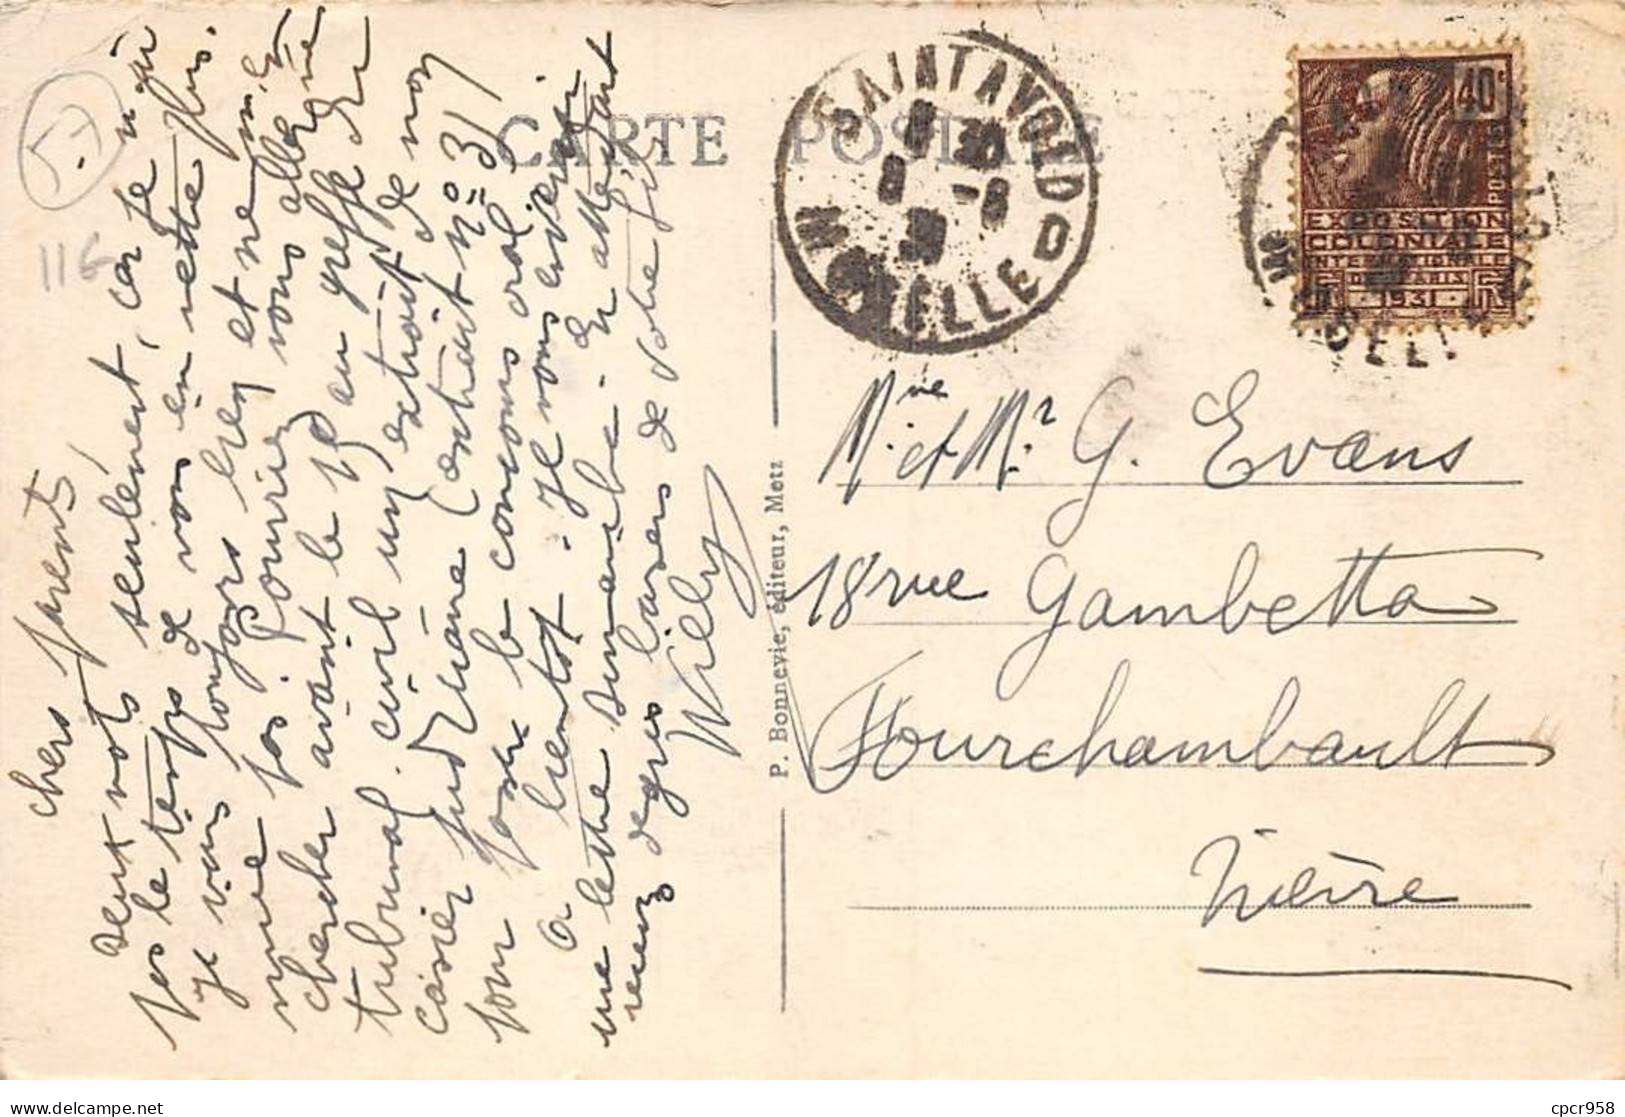 57
116
CARTE POSTALE
SAINT AVOLD
8 30
8 -6
31
MOSELLE
40c
POSTES
EXPOSITION
COLONIALE
INTERNATIONALE
DE PARIS
1931
MOSELLE
Chers parents,
Deux mots seulement, car je n'ai
pas le temps de vous en mettre plus.
Je vais toujours bien et ne m'en
fais pas. Pourriez vous aller me
chercher avant le 15 au greffe du
tribunal civil un extrait de mon
casier judiciaire (extrait n° 3)
pour passer le concours oral
A bientôt. Je vous écrirai
une lettre dimanche. En attendant
recevez de gros baisers de votre fils
Willy
P. Bonnevie, éditeur, Metz
Mme et Mr G. Evans
18 rue Gambetta
Fourchambault
Nièvre
cpcr958